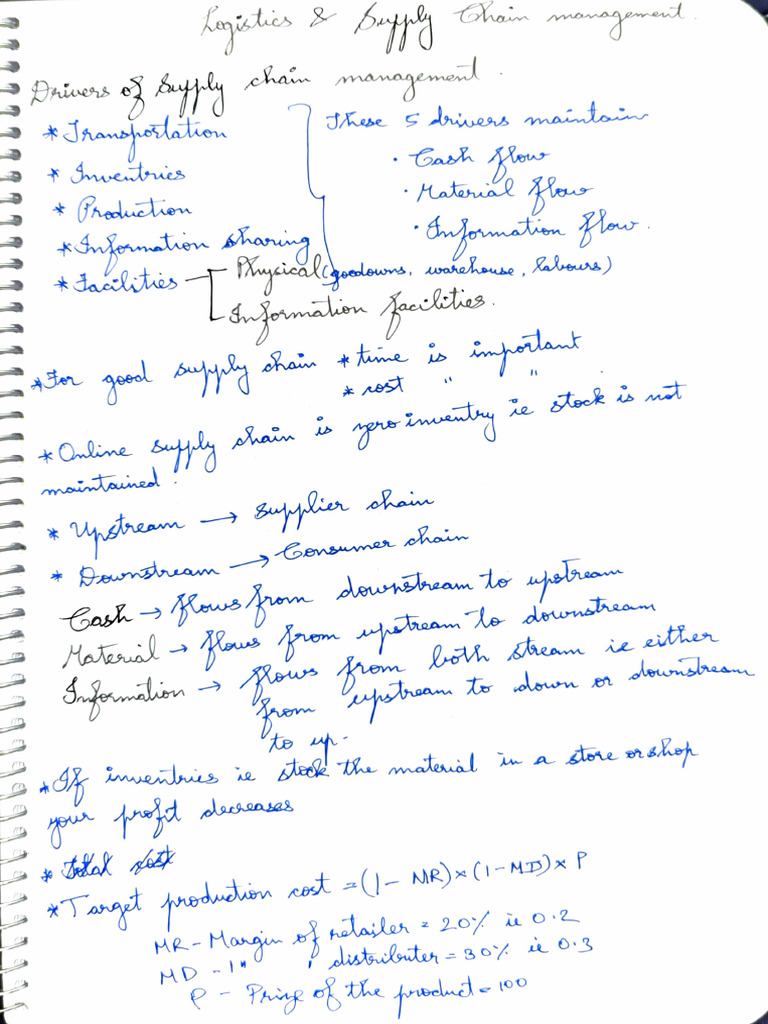 Logistics & Supply Chain management.
Drivers of Supply chain management.
* Transportation
* Inventries
* Production
* Information sharing
* Facilities
Physical (goodowns, warehouse, labours)
Information facilities.
These 5 drivers maintain
· Cash flow
· Material flow
· Information flow.
* For good supply chain * time is important
* cost " "
* Online supply chain is zero inventry ie stock is not
maintained.
* Upstream → Supplier chain
* Downstream → Consumer chain
Cash → flows from downstream to upstream
Material → flows from upstream to downstream
Information → flows from both stream ie either
from upstream to down or downstream
to up.
* If inventries ie stock the material in a store or shop
your profit decreases
* Total cost
* Target production cost = (1 - MR) × (1 - MD) × P
MR - Margin of retailer = 20% ie 0.2
MD - 1" " distributer = 30% ie 0.3
P - Prize of the product = 100